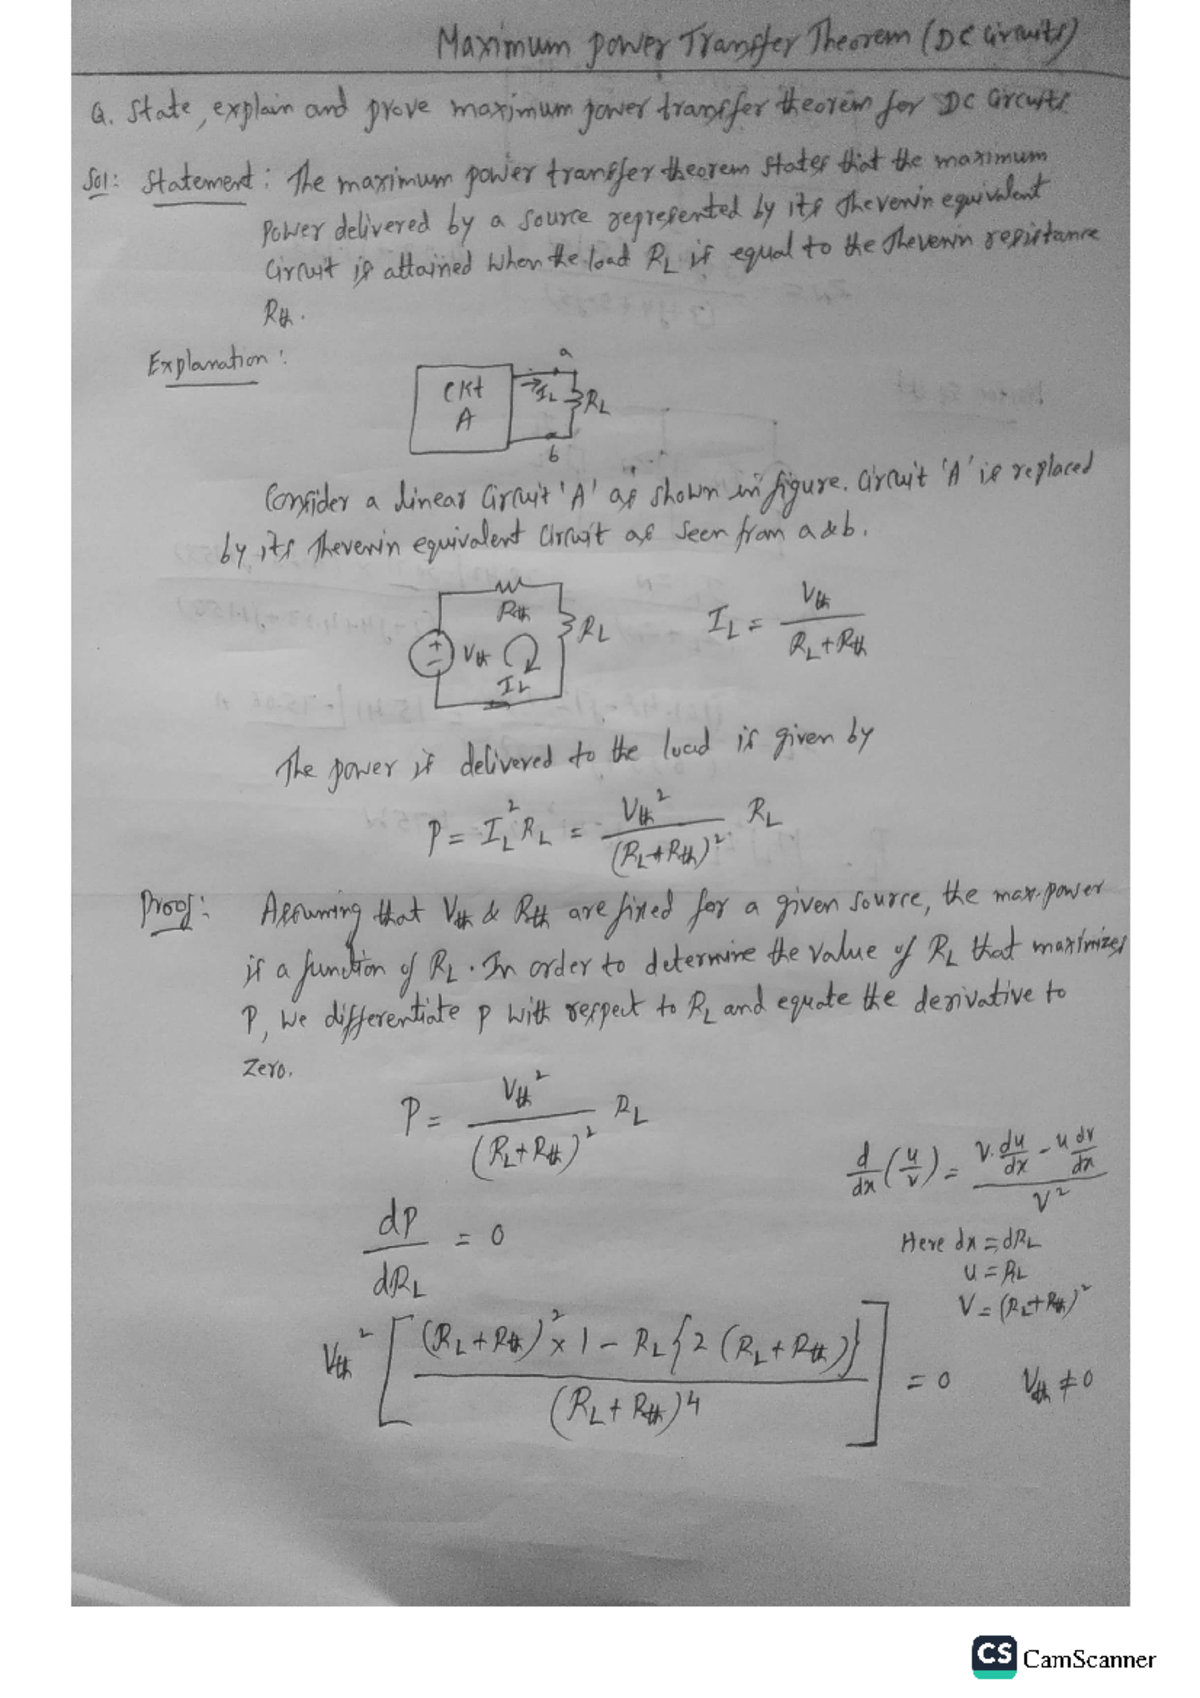 Maximum power Transfer Theorem (DC Circuits)
Q. State, explain and prove maximum power transfer theorem for DC Circuits
Sol: Statement: The maximum power transfer theorem states that the maximum
Power delivered by a source represented by its Thevenin equivalent
Circuit is attained when the load RL is equal to the Thevenin resistance
Rth.
Explanation:
Ckt A
a
IL
RL
b
Consider a linear Circuit 'A' as shown in figure. Circuit 'A' is replaced
by its Thevenin equivalent Circuit as seen from a & b.
Rth
RL
+ - Vth
IL
IL = Vth / (RL + Rth)
The power is delivered to the load is given by
P = IL² RL = Vth² / (RL + Rth)² RL
Proof: Assuming that Vth & Rth are fixed for a given source, the max. power
is a function of RL. In order to determine the value of RL that maximizes
P, we differentiate P with respect to RL and equate the derivative to
zero.
P = Vth² / (RL + Rth)² RL
d/dx (u/v) = (v. du/dx - u dv/dx) / v²
dP / dRL = 0
Here dx = dRL
u = RL
V = (RL + Rth)²
Vth² [ ((RL + Rth)² × 1 - RL {2 (RL + Rth)}) / (RL + Rth)4 ] = 0 Vth ≠ 0
CS CamScanner